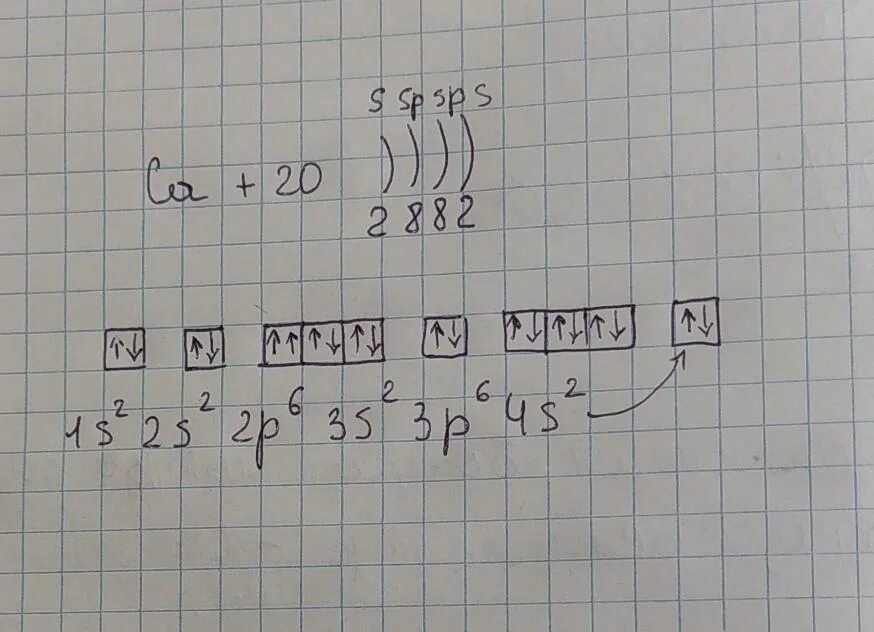 s sp sp s
Ca + 20 ) ) ) )
2 8 8 2
↑↓ ↑↓ ↑↑ ↑↓ ↑↓ ↑↓ ↑↓ ↑↓ ↑↓ ↑↓
1s² 2s² 2p⁶ 3s² 3p⁶ 4s²